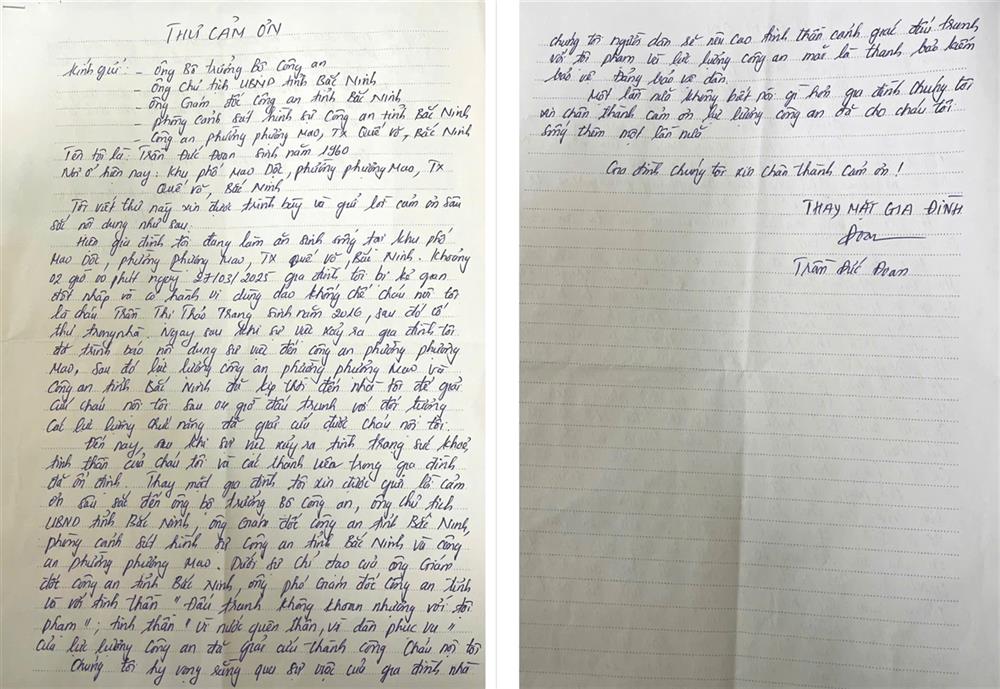 THƯ CẢM ƠN
Kính gửi: - Ông Bộ trưởng Bộ Công an
- Ông Chủ tịch UBND tỉnh Bắc Ninh
- Ông Giám đốc Công an tỉnh Bắc Ninh
- Phòng cảnh sát hình sự Công an tỉnh Bắc Ninh
- Công an phường phương Mao, TX Quế Võ, Bắc Ninh
Tên tôi là: Trần Đức Đoan Sinh năm 1960
Nơi ở hiện nay: Khu phố Mao Dộc, phường phương Mao, TX
Quế Võ, Bắc Ninh
Tôi viết thư này xin được trình bày và gửi lời cảm ơn sâu
sắc nội dung như sau.
Hiện gia đình tôi đang làm ăn sinh sống tại khu phố
Mao Dộc, phường phương Mao, TX Quế Võ Bắc Ninh. Khoảng
02 giờ 00 phút ngày 27/03/2025 gia đình tôi bị kẻ gian
đột nhập và có hành vi dùng dao khống chế cháu nội tôi
là cháu Trần Thị Thảo Trang Sinh năm 2016, sau đó cố
thủ trong nhà. Ngay sau khi sự việc xảy ra gia đình tôi
đã trình báo nội dung sự việc đến công an phường phương
Mao, sau đó lực lượng công an phường phương Mao và
Công an tỉnh Bắc Ninh đã kịp thời đến nhà tôi để giải
cứu cháu nội tôi sau 04 giờ đấu tranh với đối tượng
các lực lượng chức năng đã giải cứu được cháu nội tôi.
Đến nay, sau khi sự việc xảy ra tình trạng sức khoẻ,
tinh thần của cháu tôi và các thành viên trong gia đình
đã ổn định. Thay mặt gia đình tôi xin được gửi lời cảm
ơn sâu sắc đến ông bộ trưởng Bộ Công an, ông chủ tịch
UBND tỉnh Bắc Ninh, ông Giám đốc Công an tỉnh Bắc Ninh,
phòng cảnh sát hình sự Công an tỉnh Bắc Ninh và công
an phường phương Mao. Dưới sự chỉ đạo của ông Giám
đốc Công an tỉnh Bắc Ninh, ông phó Giám đốc Công an tỉnh
và với tinh thần "Đấu tranh không khoan nhượng với tội
phạm"; tinh thần "vì nước quên thân, vì dân phục vụ"
của lực lượng Công an đã giải cứu thành công cháu nội tôi
Chúng tôi hy vọng rằng qua sự việc của gia đình nhà
chúng tôi người dân sẽ nêu cao tinh thần cảnh giác đấu tranh
với tội phạm và lực lượng công an mãi là thanh bảo kiếm
bảo vệ Đảng bảo vệ dân.
Một lần nữa không biết nói gì hơn gia đình chúng tôi
xin chân thành cảm ơn lực lượng công an đã cho cháu tôi
sống thêm một lần nữa
Gia đình chúng tôi xin chân thành cảm ơn!
THAY MẶT GIA ĐÌNH
Đoan
Trần Đức Đoan